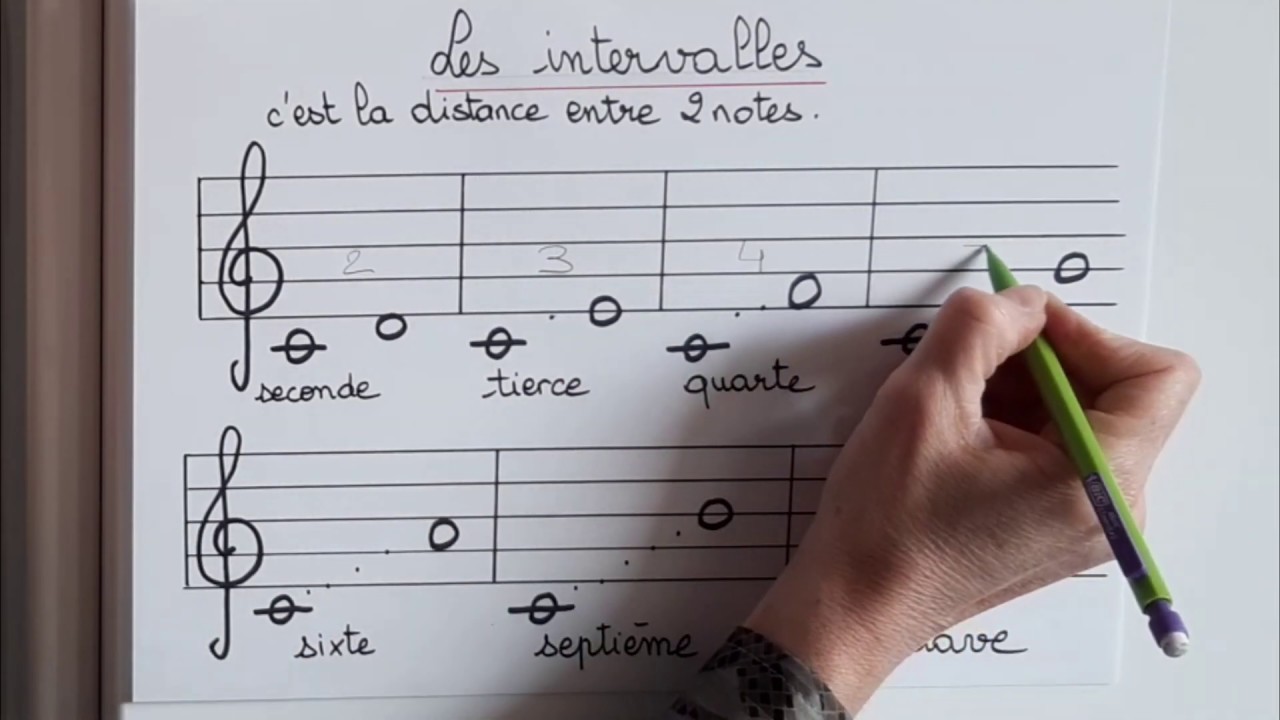 Les intervalles
c'est la distance entre 2 notes.
2 3 4
seconde tierce quarte
sixte septième